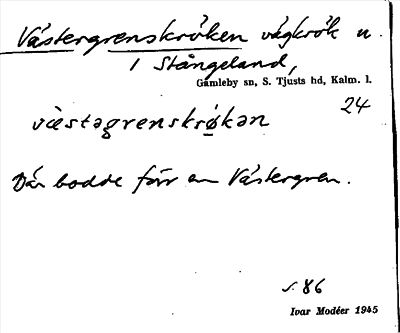 Västergrenskröken vägkrök n.
1 Stångeland,
Gamleby sn, S. Tjusts hd, Kalm. l.
24
væstəgrenskrøkən
Där bodde förr en Västergren.
s. 86
Ivar Modéer 1945